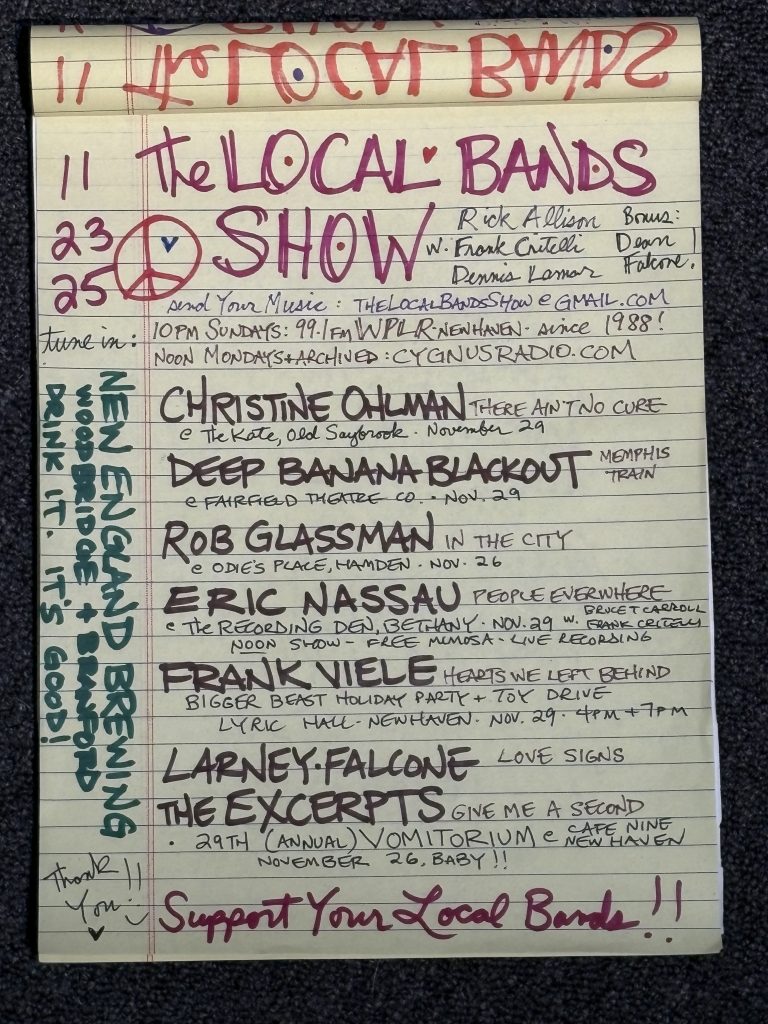 The LOCAL BANDS
11
11
The LOCAL BANDS
23
SHOW
25
w. Rick Allison
Frank Critelli
Dennis Lamar
Bonus:
Dean
Falcone!
Send Your Music: THELOCALBANDSSHOW@GMAIL.COM
tune in:
10PM SUNDAYS: 99.1FM WPLR·NEWHAVEN· since 1988!
NOON MONDAYS+ARCHIVED: CYGNUSRADIO.COM
CHRISTINE OHLMAN THERE AIN'T NO CURE
@ The Kate, Old Saybrook · November 29
DEEP BANANA BLACKOUT MEMPHIS
TRAIN
@ FAIRFIELD THEATRE CO. · NOV. 29
ROB GLASSMAN IN THE CITY
@ ODIE'S PLACE, HAMDEN · NOV. 26
ERIC NASSAU PEOPLE EVERYWHERE
@ The RECORDING DEN, BETHANY · NOV. 29 w. BRUCE T CARROLL
FRANK CRITELLI
NOON SHOW - FREE MIMOSA - LIVE RECORDING
FRANK VIELE HEARTS WE LEFT BEHIND
BIGGER BEAST HOLIDAY PARTY + TOY DRIVE
LYRIC HALL · NEWHAVEN · NOV. 29 · 4PM + 7PM
LARNEY·FALCONE LOVE SIGNS
THE EXCERPTS GIVE ME A SECOND
· 29TH (ANNUAL) VOMITORIUM @ CAFE NINE
NEW HAVEN
NOVEMBER 26, BABY!!
NEW ENGLAND BREWING
WOODBRIDGE + BRANFORD
DRINK IT. IT'S GOOD!
Thank
You!!
Support Your Local Bands!!